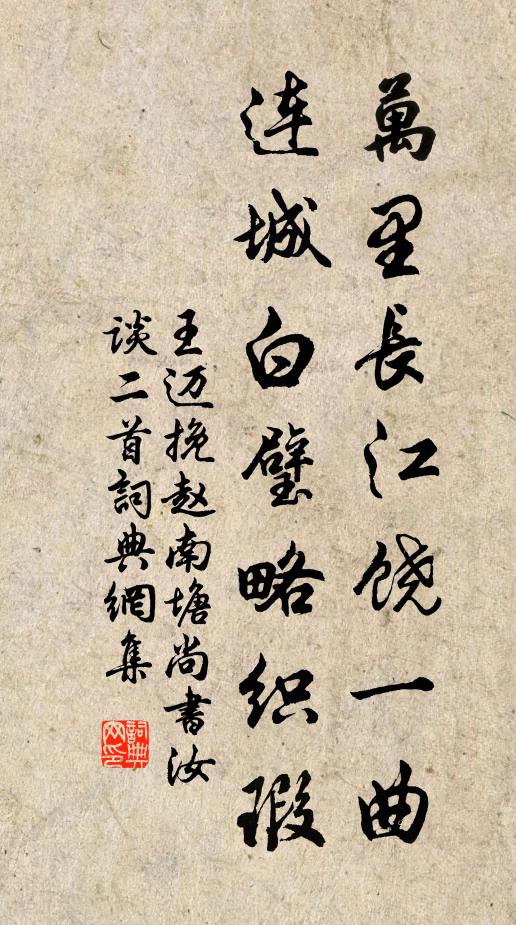 萬里長江饶一曲
連城白璧略织瑕
王迈挽赵南塘尚書汝
谈二首詞典網集
詞典